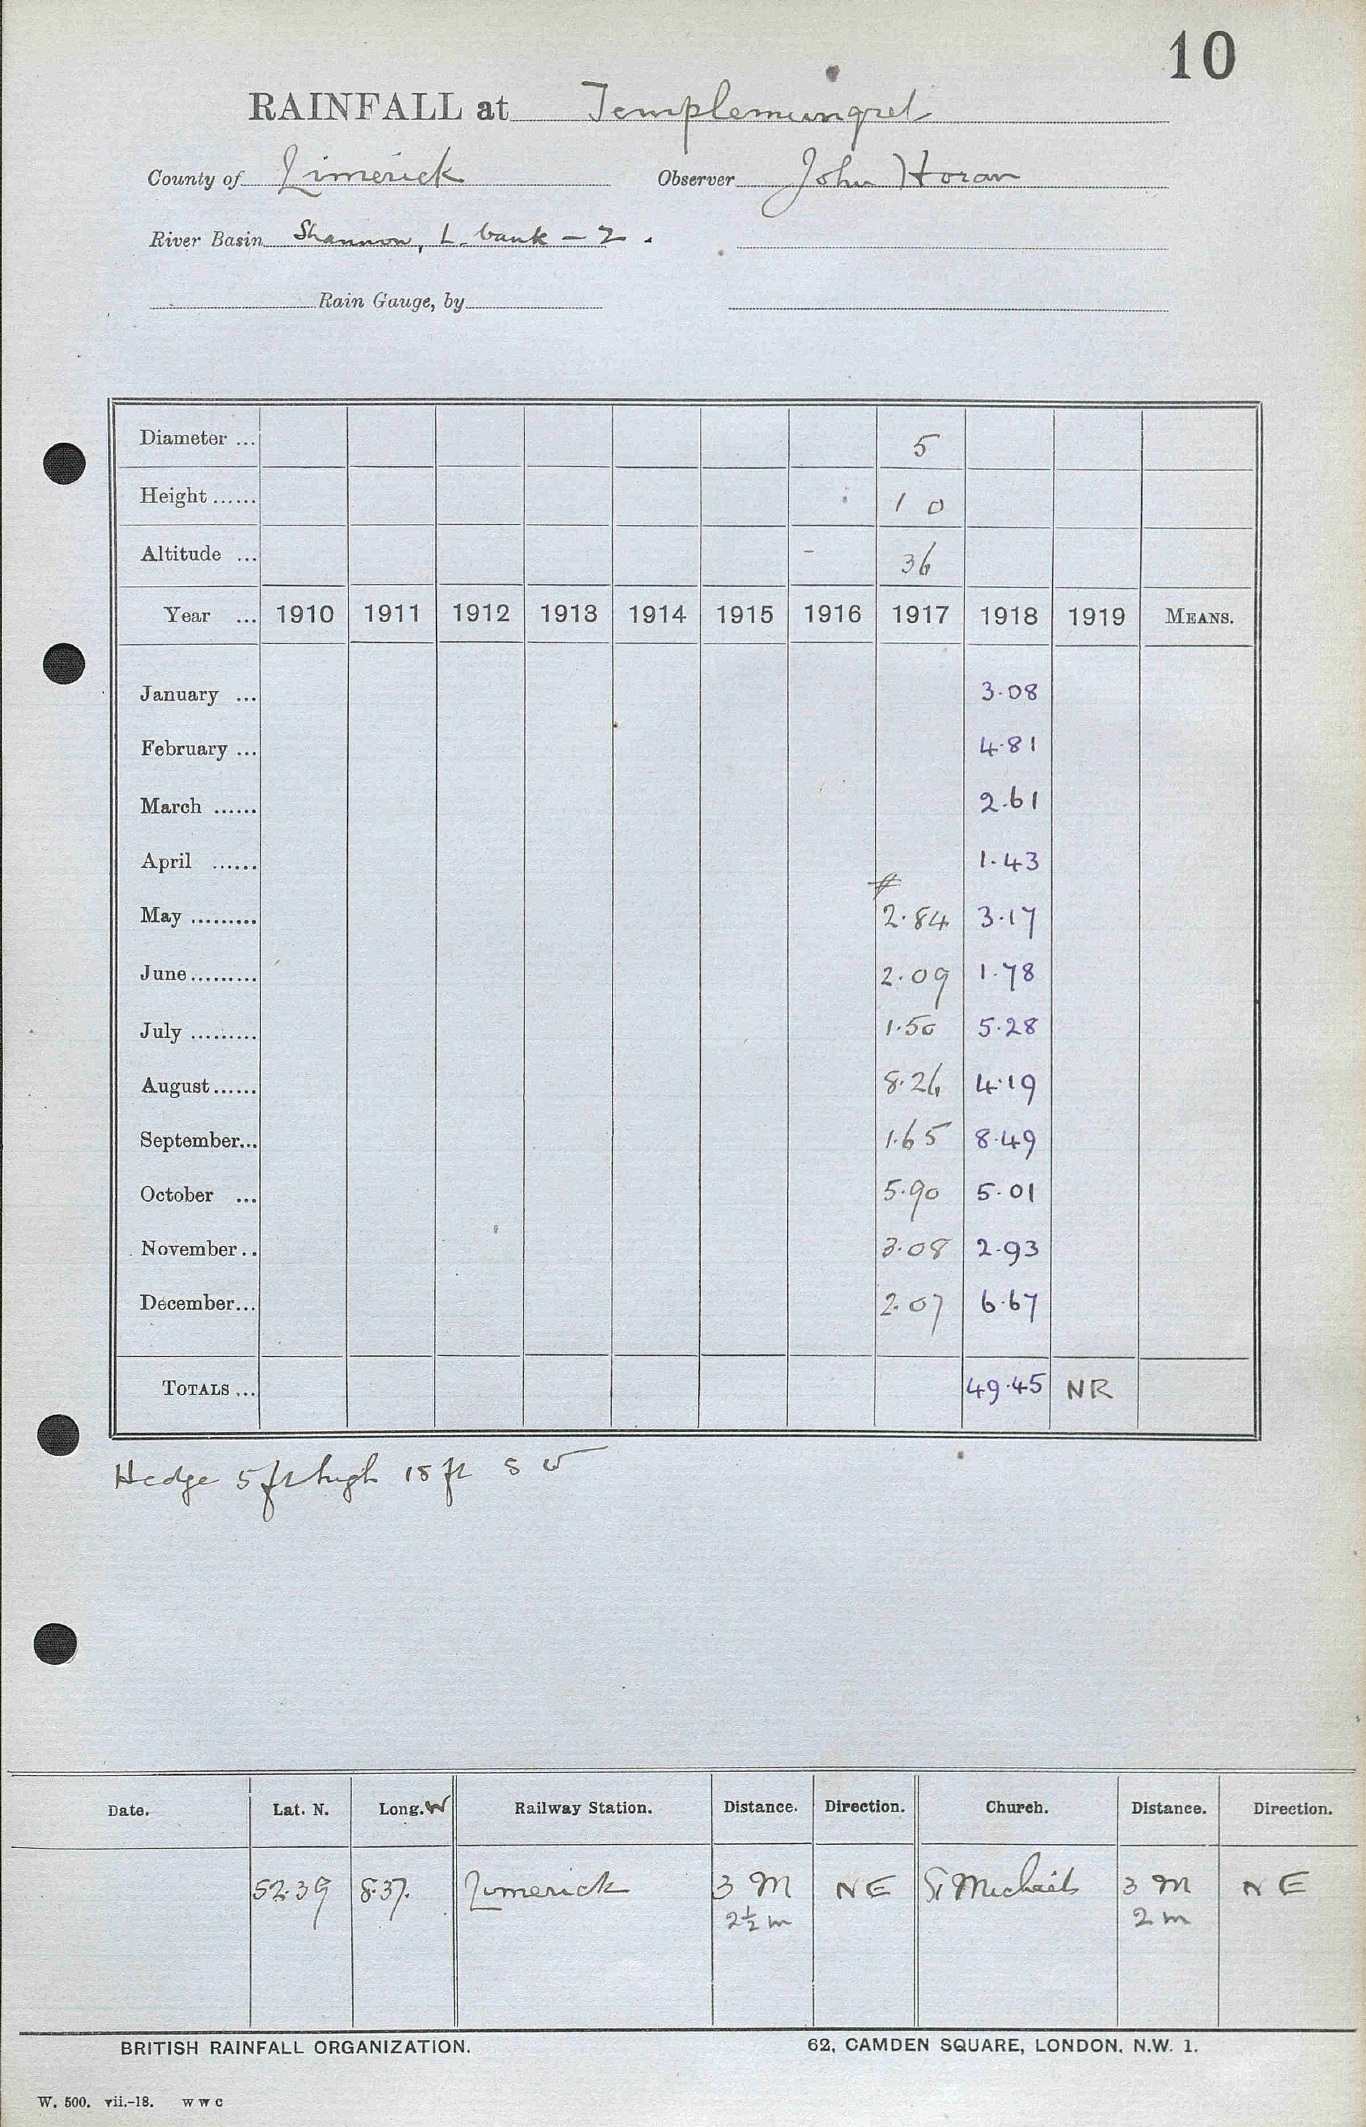 10
RAINFALL at Templemungret
County of Limerick Observer John Horan
River Basin Shannon, L. bank - 2.
Rain Gauge, by
Diameter ... 5
Height ...... 1 0
Altitude ... 36
Year ... 1910 1911 1912 1913 1914 1915 1916 1917 1918 1919 MEANS.
January ... 3.08
February ... 4.81
March ...... 2.61
April ...... 1.43
#
May ......... 2.84 3.17
June......... 2.09 1.78
July ......... 1.50 5.28
August...... 8.26 4.19
September... 1.65 8.49
October ... 5.90 5.01
November.. 3.08 2.93
December... 2.07 6.67
TOTALS ... 49.45 NR
Hedge 5 ft high 15 ft S W
Date. Lat. N. Long. W Railway Station. Distance. Direction. Church. Distance. Direction.
52.39 8.37. Limerick 3 M NE St Michaels 3 M NE
2½ m 2 m
BRITISH RAINFALL ORGANIZATION. 62, CAMDEN SQUARE, LONDON, N.W. 1.
W. 500. vii.-18. w w c